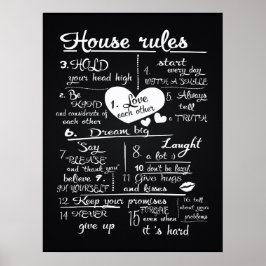 House rules
3. HOLD
your head high
4. start
every day
WITH A SMILE
2. Be
KIND
and considerate
of each other
1. Love
each other
5. Always
tell
a TRUTH
6. Dream big
7. "Say
PLEASE
and thank you"
8. Laught
a lot :)
10. don't be lazy!
believe 9.
IN YOURSELF
11. Give hugs
and kisses
12. Keep your promises
16. tell
about your
problems
14. NEVER
give up
15 FORGIVE
even when
it's hard